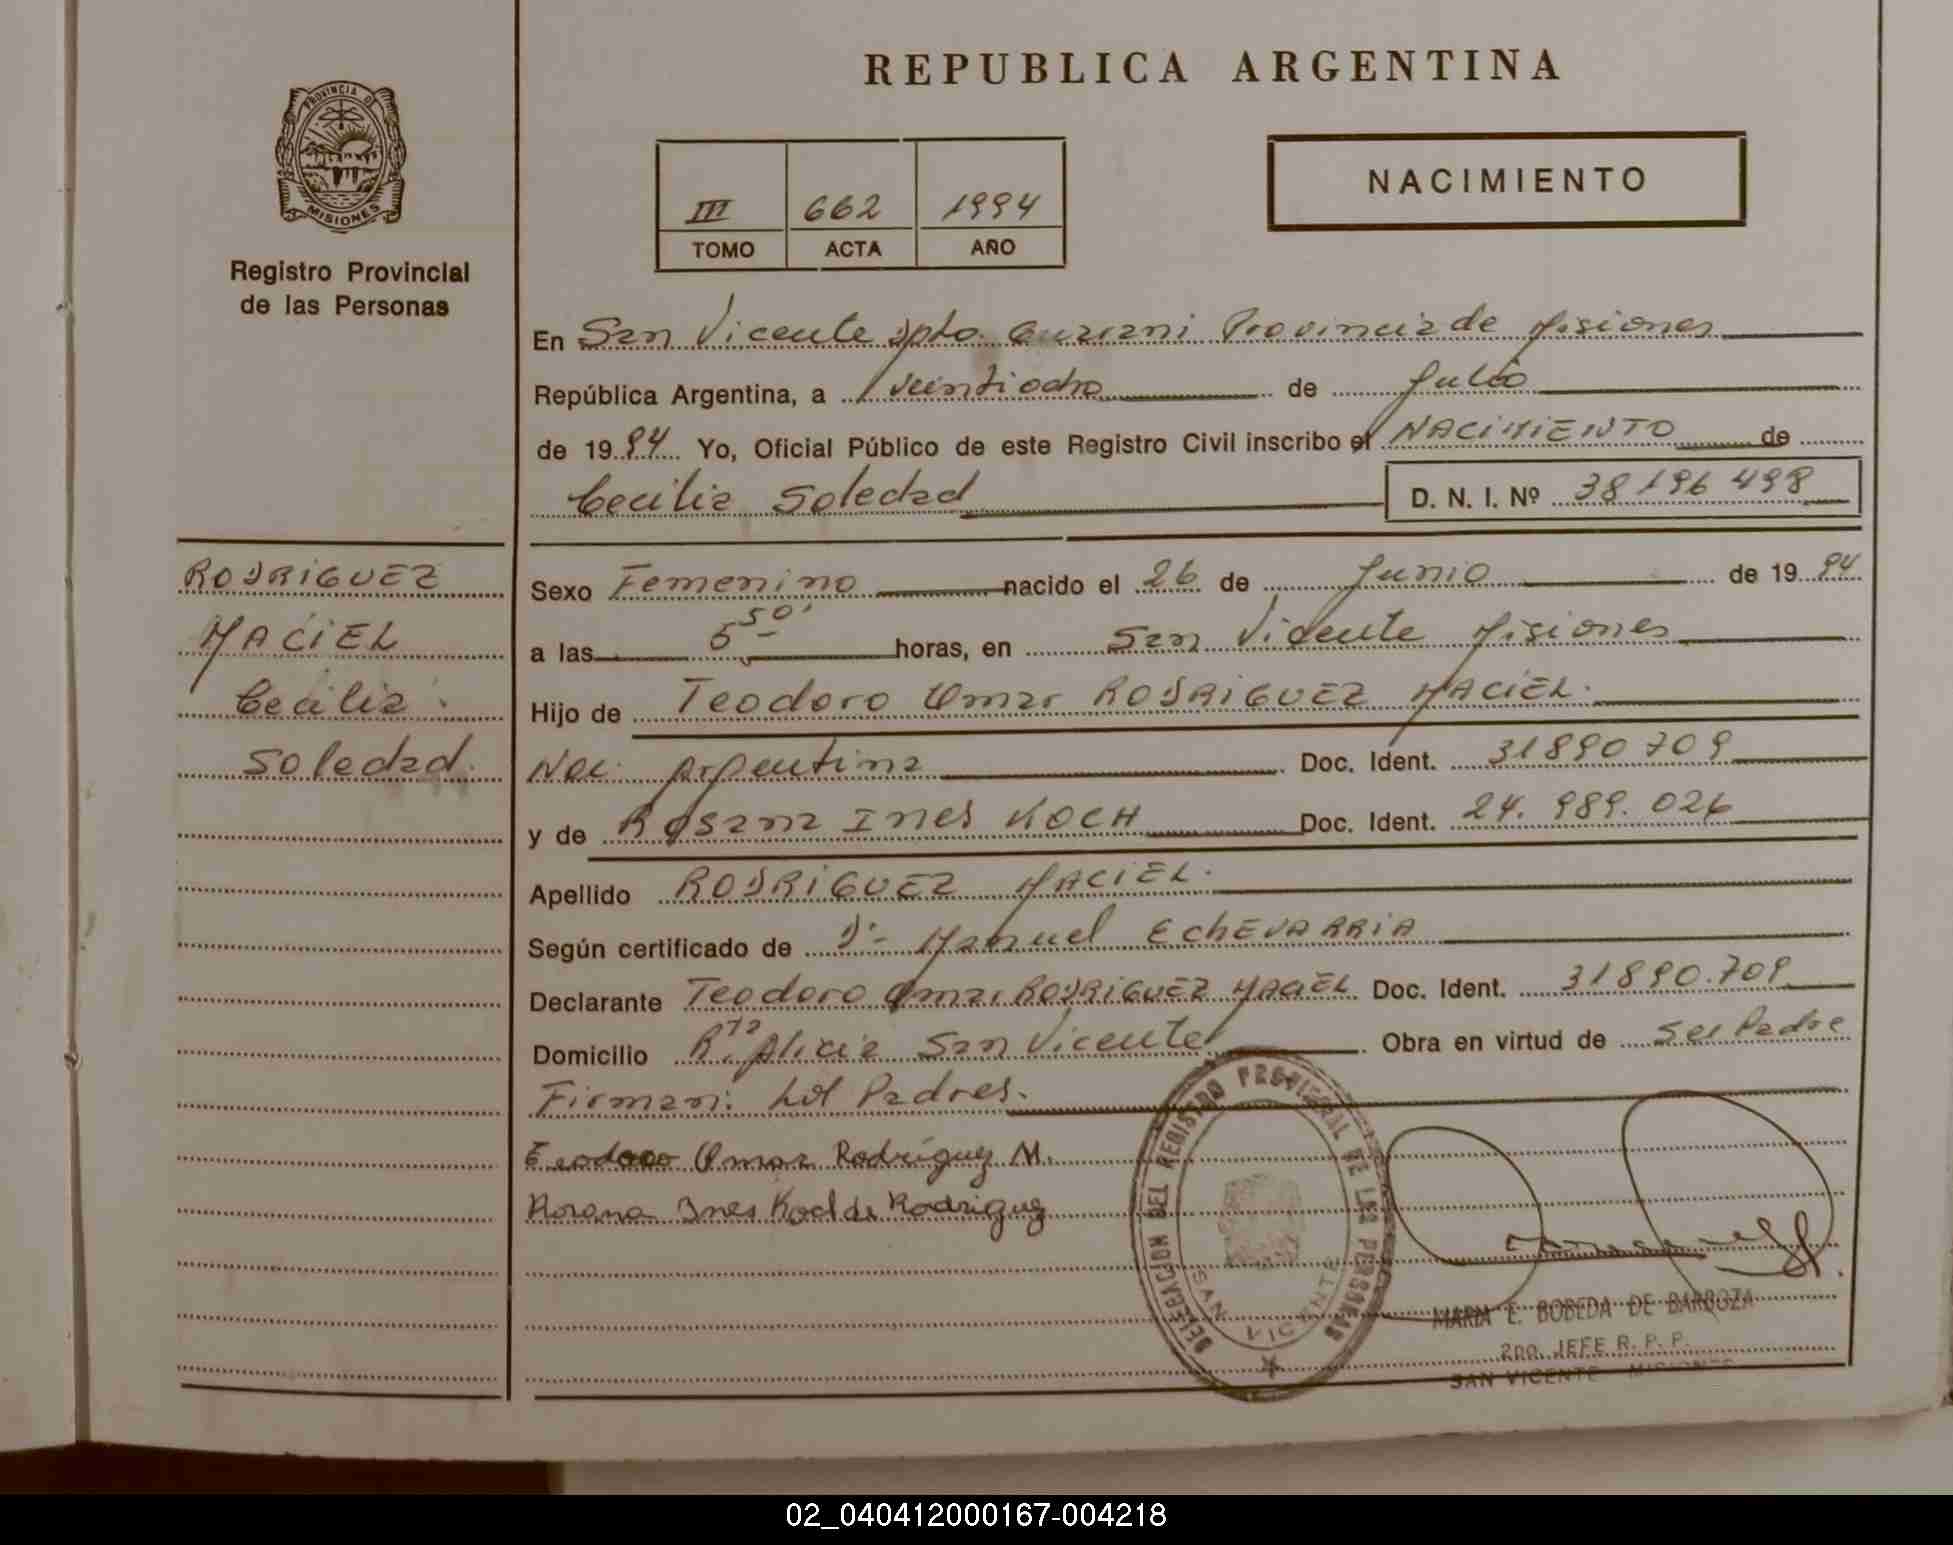 REPUBLICA ARGENTINA
PROVINCIA DE
MISIONES
Registro Provincial
de las Personas
III 662 1994
TOMO ACTA AÑO
NACIMIENTO
En San Vicente Dpto. Guarani Provincia de Misiones
República Argentina, a veintiocho de Julio
de 1994 Yo, Oficial Público de este Registro Civil inscribo el NACIMIENTO de
Cecilia Soledad D. N. I. Nº 38196498
RODRIGUEZ
MACIEL
Cecilia
Soledad.
Sexo Femenino nacido el 26 de Junio de 1994
a las 5 50' horas, en San Vicente Misiones
Hijo de Teodoro Omar RODRIGUEZ MACIEL.
Nac. Argentina Doc. Ident. 31890709
y de Rosana Ines KOCH Doc. Ident. 24.989.026
Apellido RODRIGUEZ MACIEL.
Según certificado de Dr. Manuel EChEVARRIA
Declarante Teodoro Omar RODRIGUEZ MACIEL Doc. Ident. 31890.709
Domicilio Rta Alicia San Vicente Obra en virtud de Ser Padre
Firman: Los Padres.
Teodoro Omar Rodríguez M.
Rosana Ines Koch de Rodriguez
DELEGACION DEL REGISTRO PROVINCIAL DE LAS PERSONAS
SAN VICENTE
MARIA E. BOBEDA DE BARBOZA
2DO. JEFE R. P. P.
SAN VICENTE - MISIONES
02_040412000167-004218